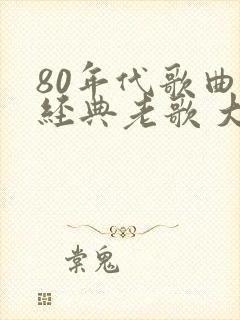 80年代歌曲
經典老歌 大
棠鬼